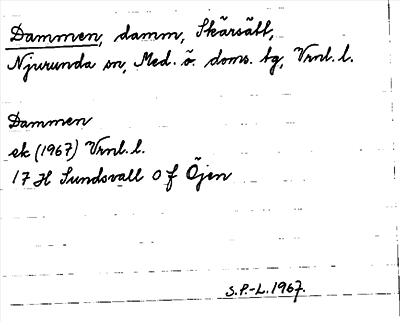 Dammen, damm, Skärsätt,
Njurunda sn, Med. ö. doms. tg, Vrnl. l.
Dammen
ek (1967) Vrnl. l.
17 H Sundsvall 0 f Öjen
S.P.-L. 1967.